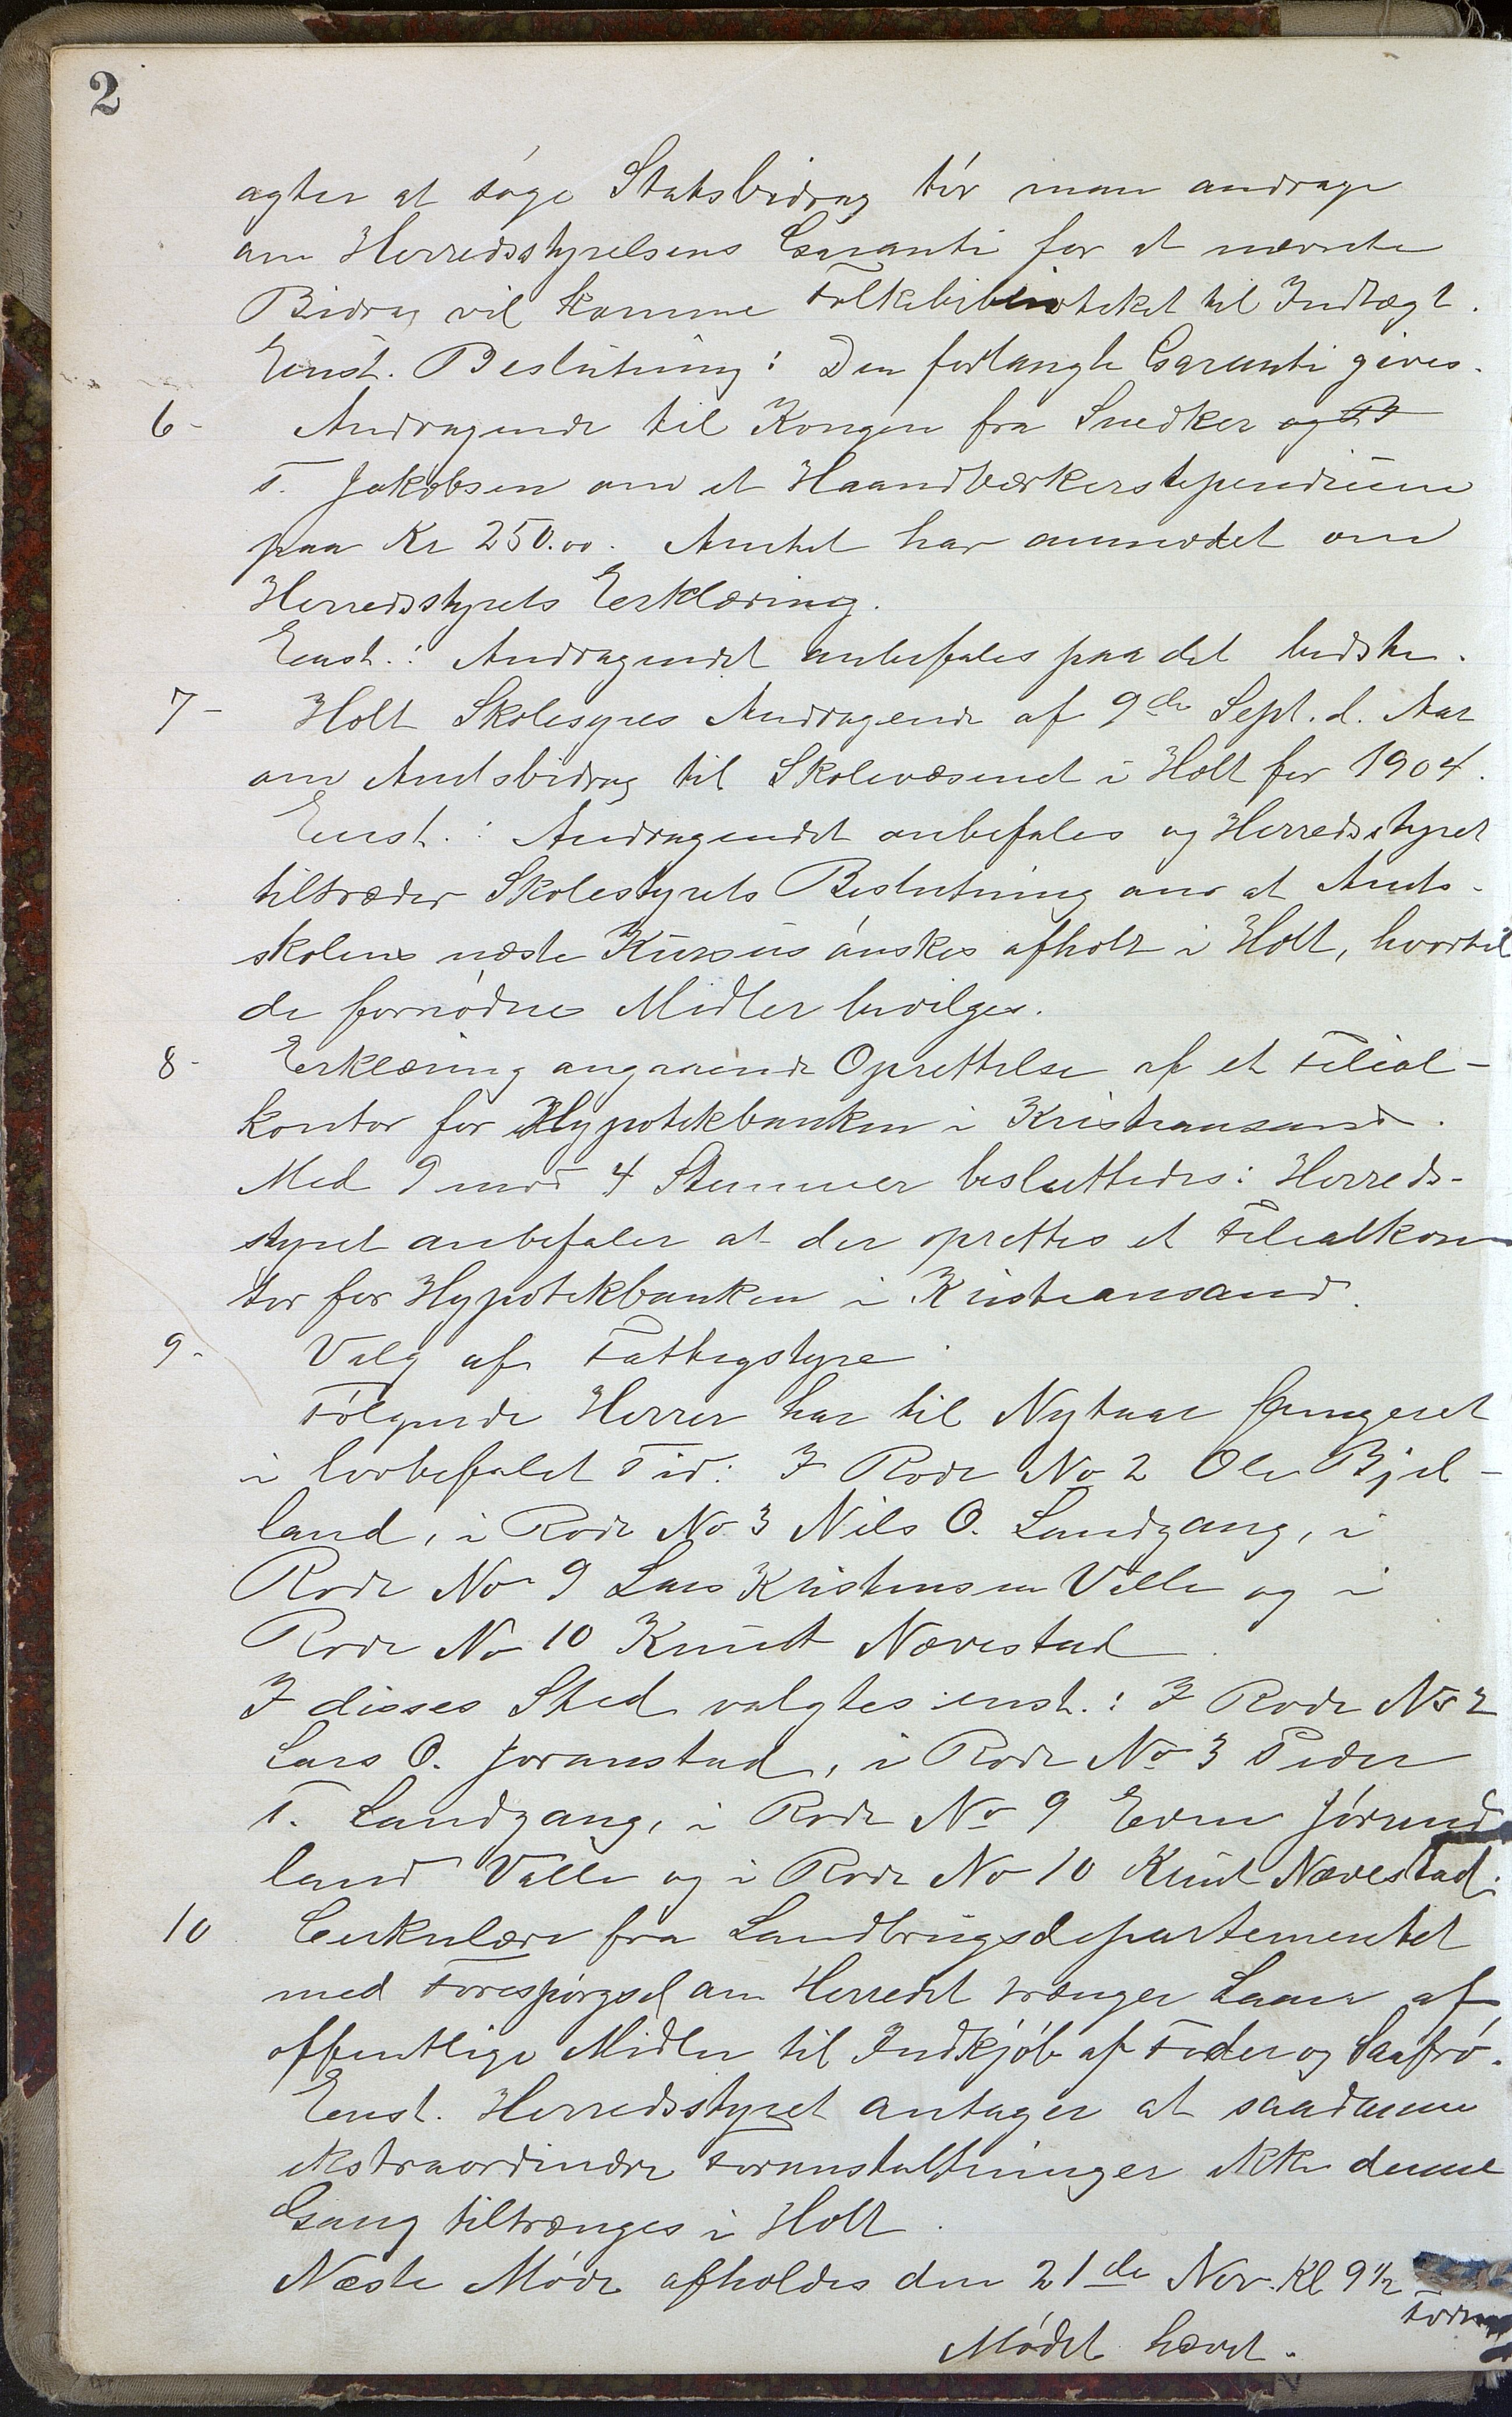 2
agter at søge Statsbidrag tør man andrage
om Herredsstyrelsens Garanti for at nævnte
Bidrag vil komme Folkebiblioteket til Indtægt.
Enst. Beslutning: Den forlangte Garanti gives.
6- Andragende til Kongen fra Snedker og
T. Jakobsen om et Haandværkerstipendium
paa Kr 250.00. Amtet har anmodet om
Herredsstyrets Erklæring.
Enst.: Andragendet anbefales paa det bedste.
7- Holt Skolesyres Andragende af 9de Sept. d. Aar
om Amtsbidrag til Skolevæsenet i Holt for 1904.
Enst.: Andragendet anbefales og Herredsstyret
tiltræder Skolestyrets Beslutning om at Amts-
skolens næste Kursus ønskes afholt i Holt, hvortil
de fornødne Midler bevilges.
8- Erklæring angaaende Oprettelse af et Filial-
kontor for Hypotekbanken i Kristiansand.
Med 9 mod 4 Stemmer besluttedes: Herreds-
styret anbefaler at der oprettes et Filialkon
tor for Hypotekbanken i Kristiansand.
9- Valg af Fattigstyre.
Følgende Herrer har til Nytaar fungeret
i lovbefalet Tid: I Rode No 2 Ole Bjel-
land, i Rode No 3 Nils O. Landgang, i
Rode No 9 Lars Kristensen Valle og i
Rode No 10 Knudt Nævestad.
I disses Sted valgtes enst.: I Rode No 2
Lars O. Joranstad, i Rode No 3 Peder
T. Landgang, i Rode No 9 Even Jørund
land Valle og i Rode No 10 Knut Nævestad.
10 Cirkulære fra Landbrugsdepartementet
med Forespørgsel om Herredet trænger Laan af
offentlige Midler til Indkjøb af Foder og Saafrø.
Enst. Herredsstyret antager at saadanne
ekstraordinære Foranstaltninger ikke denne
Gang tiltrænges i Holt.
Næste Møde afholdes den 21de Nov. Kl 9½
Form
Mødet hævet.